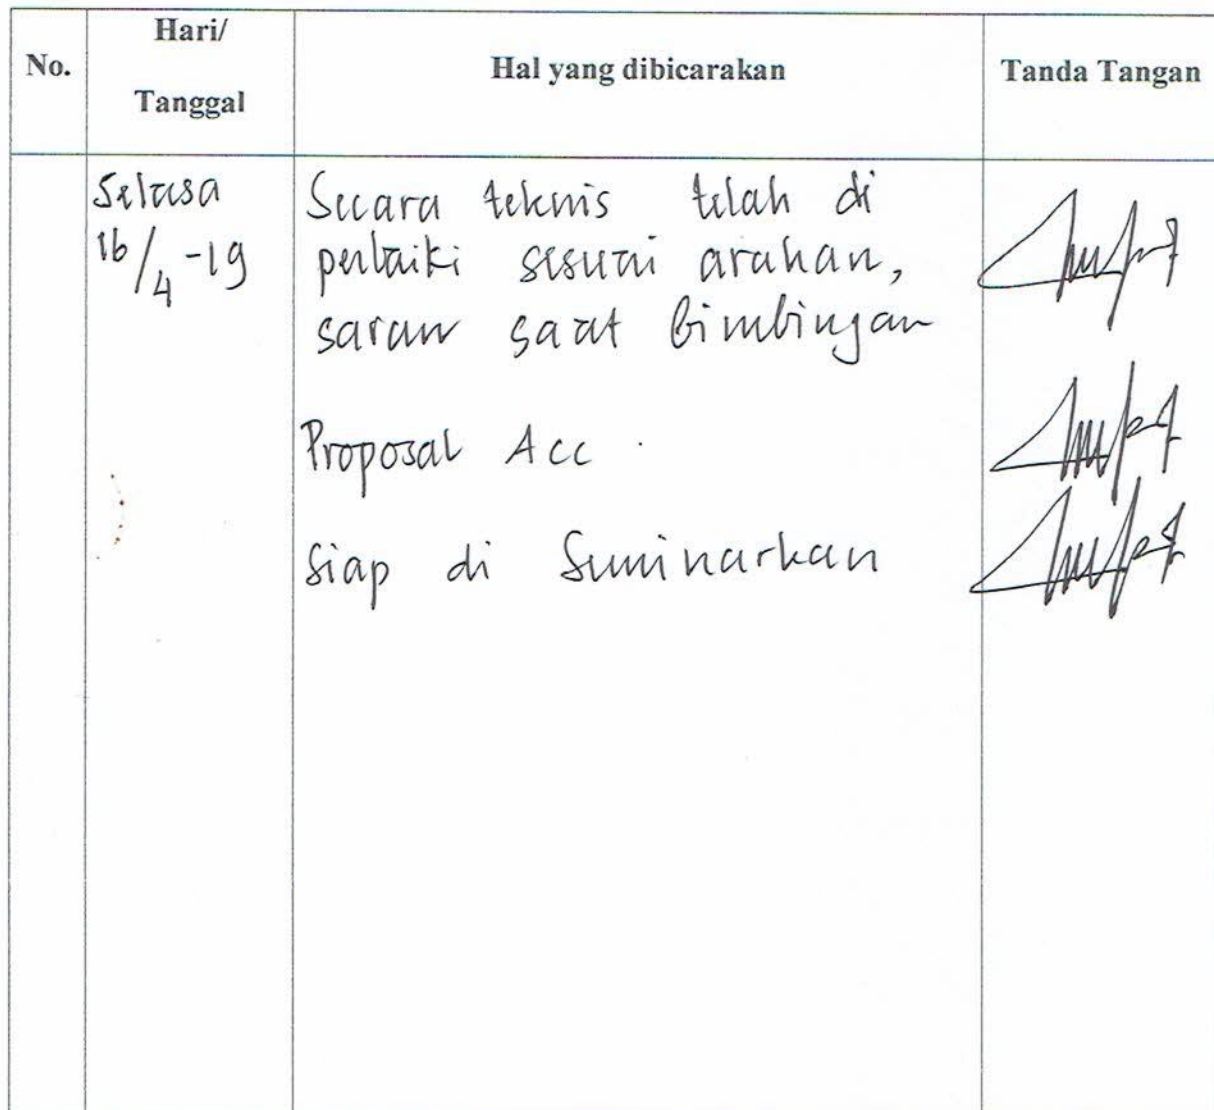 No.
Hari/
Tanggal
Hal yang dibicarakan
Tanda Tangan
Selasa
16/4-19
Secara teknis telah di
perbaiki sesuai arahan,
saran saat bimbingan
Proposal Acc.
Siap di Seminarkan